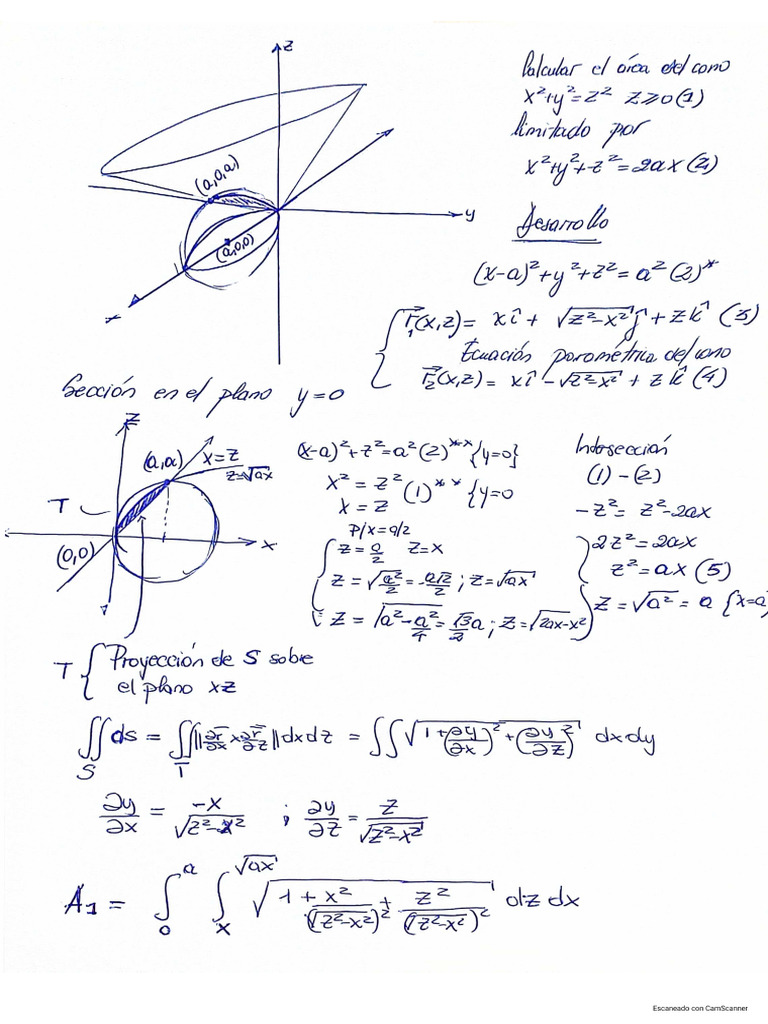 z
Calcular el área del cono
x²+y²=z² z⩾0 (1)
limitado por
x²+y²+z²=2ax (2)
(a,0,a)
y
(a,0,0)
x
Desarrollo
(x-a)²+y²+z²=a² (2)*
r₁(x,z)= xî + √(z²-x²) ĵ + z k̂ (3)
Ecuación paramétrica del cono
r₂(x,z)= xî - √(z²-x²) + z k̂ (4)
Sección en el plano y=0
z
(a,a)
x=z
z=√ax
T
(0,0)
x
(x-a)²+z²=a² (2)** {y=0}
x²=z² (1)** {y=0
x=z
P/x=a/2
z=a/2 z=x
z=√(a²/2)=a√2/2 ; z=√ax
z=√(a²-a²/4)=√3/2 a; z=√(2ax-x²)
Intersección
(1)-(2)
-z²= z²-2ax
2z²=2ax
z²=ax (5)
z=√a²=a {x=a}
T { Proyección de S sobre
el plano xz
∬_S ds = ∬_T ||∂r/∂x × ∂r/∂z|| dx dz = ∬ √(1+(∂y/∂x)²+(∂y/∂z)²) dx dy
∂y/∂x = -x/√(z²-x²) ; ∂y/∂z = z/√(z²-x²)
A₁ = ∫₀^a ∫ₓ^√ax √(1+x²/(√(z²-x²))²+z²/(√(z²-x²))²) dz dx
Escaneado con CamScanner